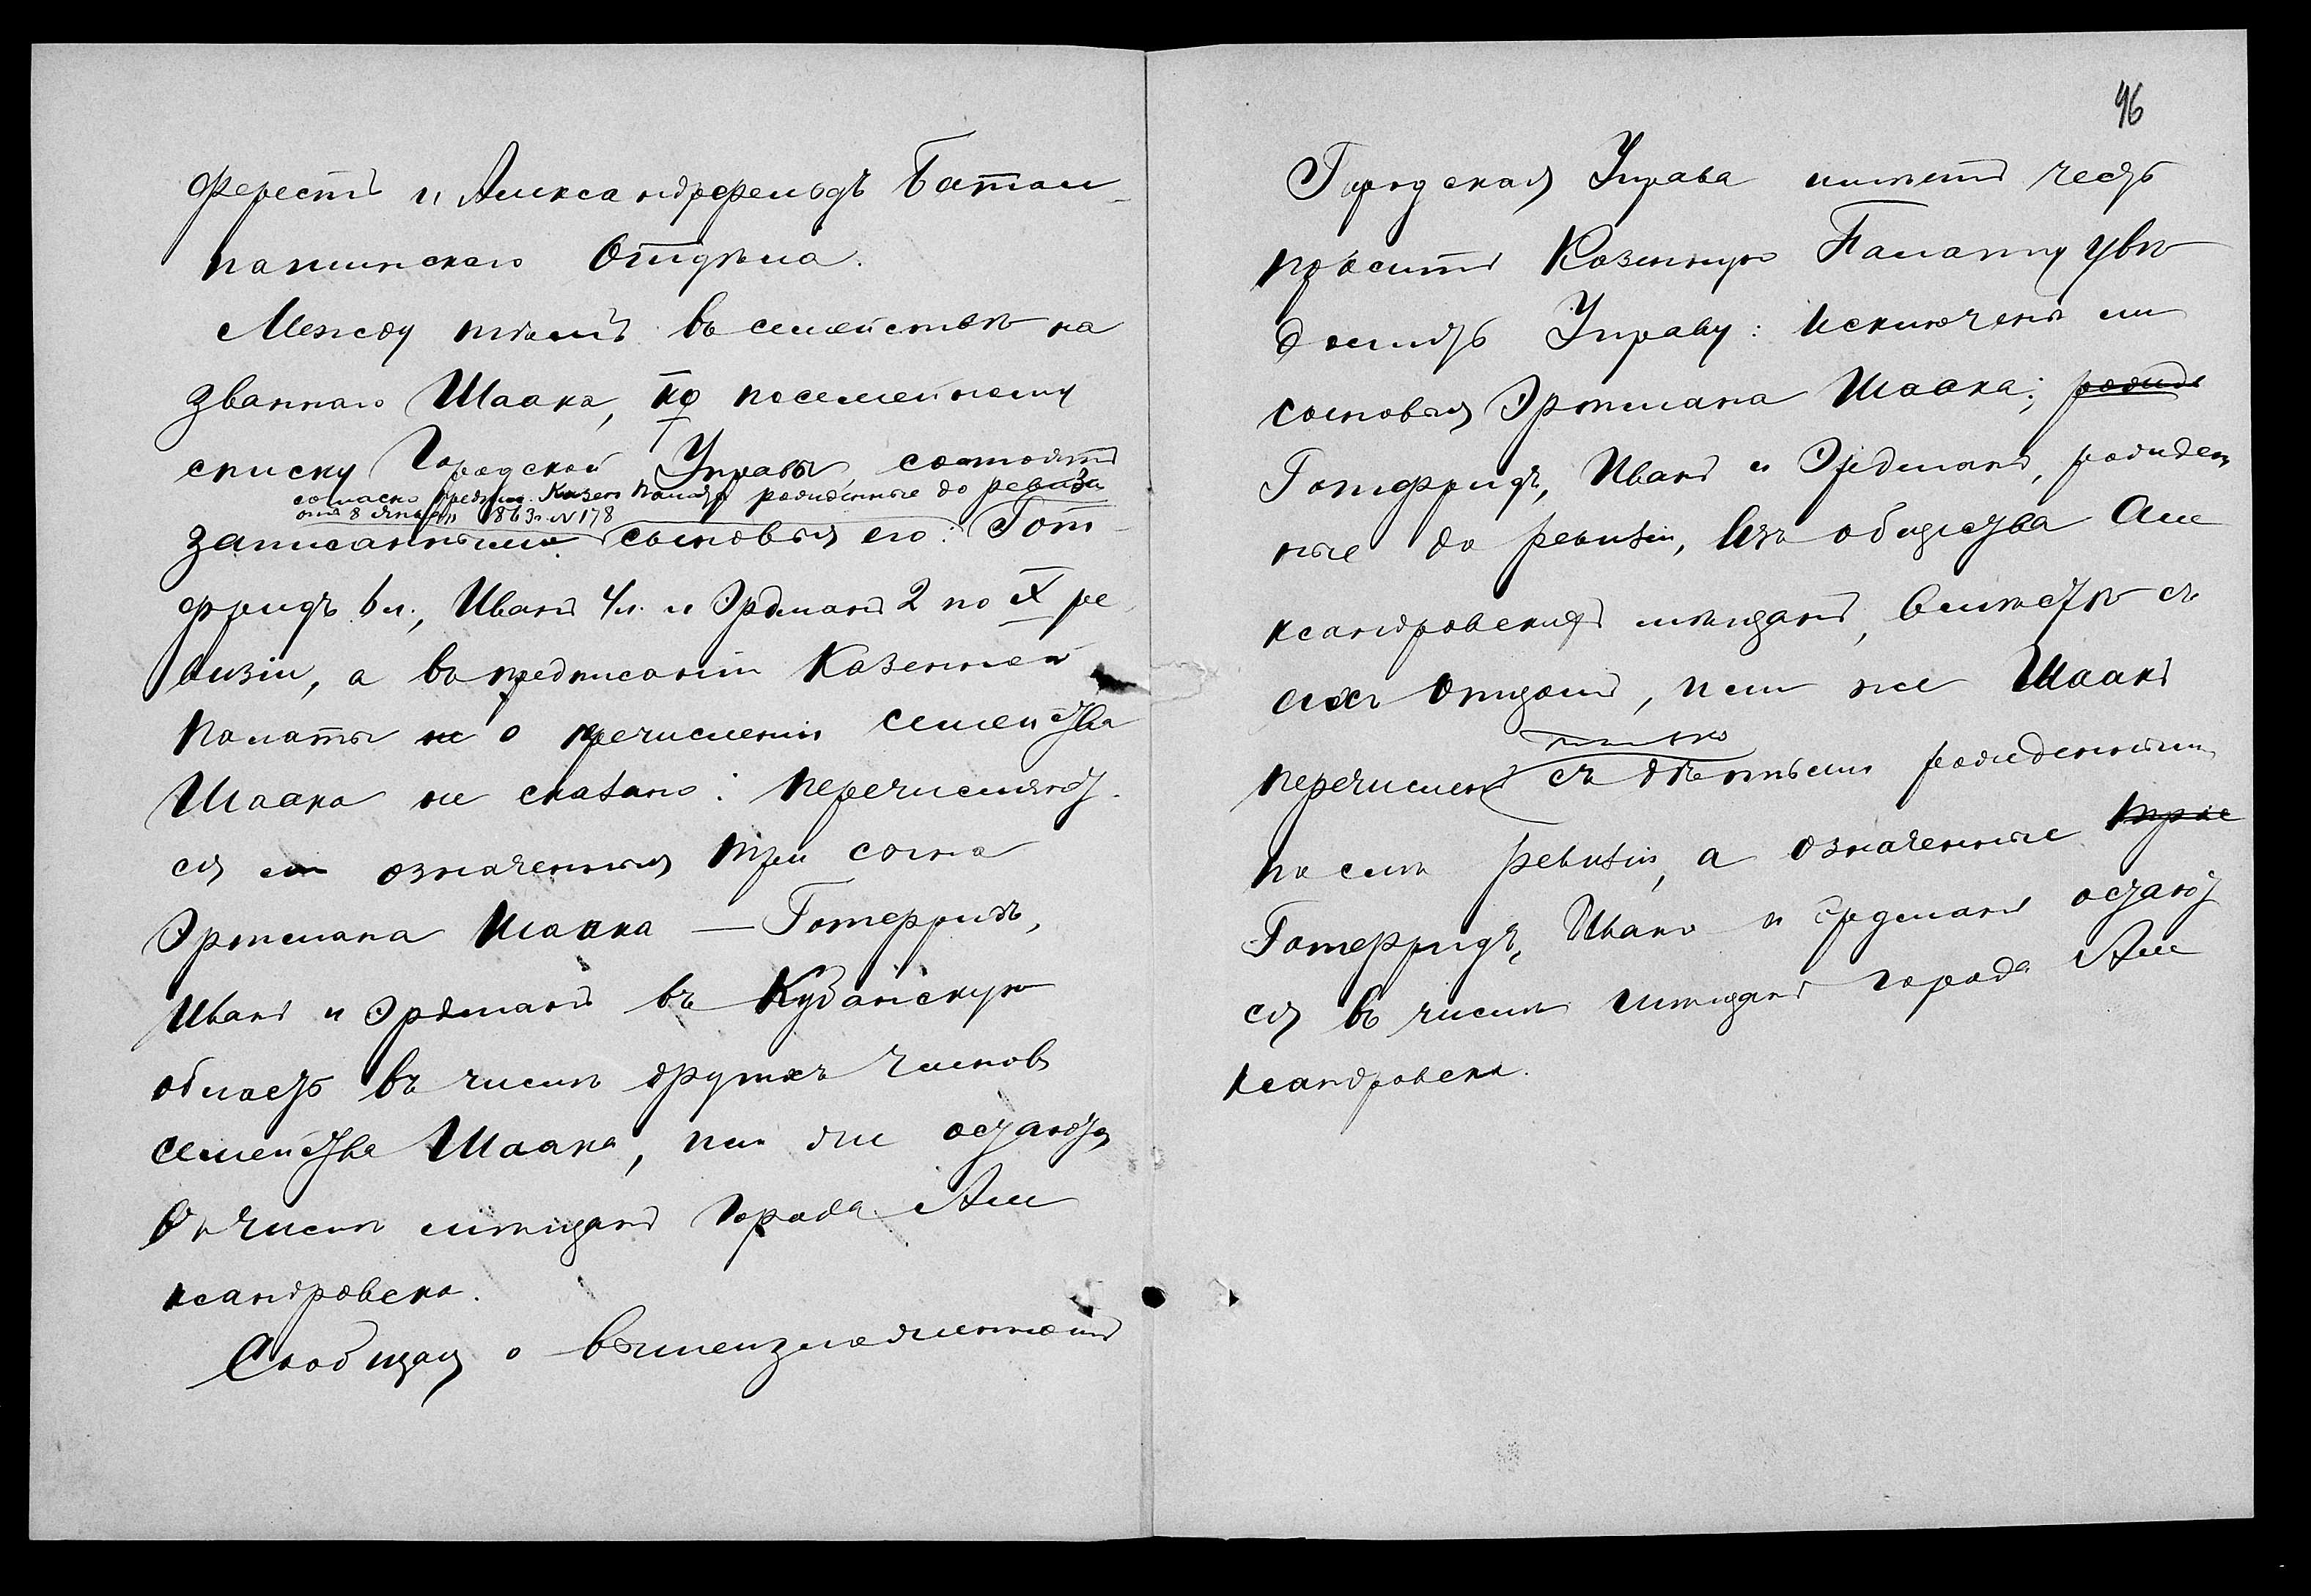 ферестъ и Александрфельдъ Батал-
пашинскаго Отдѣла.
Между тѣмъ въ семействѣ на
званнаго Шаака, по посемейному
списку Городской Управы, состоятъ
согласно предпис. Казен Палаты рожденные до ревизіи
отъ 8 января 1863 г. № 178
записанными сыновья его: Гот-
фридъ 6 л., Иванъ 4 л. и Эрдманъ 2 по X ре
визіи, а въ предписаніи Казенной
Палаты не о перечисленіи семейства
Шаака не сказано: перечисляют
ся ли означенныя три сына
Эртмана Шаака — Готерридъ,
Иванъ и Эрдманъ въ Кубанскую
область въ числѣ другихъ членовъ
семейства Шаака, или же остаются
въ числѣ мѣщанъ города Але
ксандровска.
Сообщая о вышеизложенномъ
46
Городская Управа имѣетъ честь
проситъ Казенную Палату увѣ
домить Управу: исключены ли
сыновья Эртмана Шаака: рожде
Готфридъ, Иванъ и Эрдманъ, рожден
ные до ревизіи, изъ общества Але
ксандровскихъ мѣщанъ, вмѣстѣ съ
ихъ отцомъ, или же Шаакъ
только
перечисленъ съ дѣтьми рожденными
послѣ ревизіи, а означенные трое
Готерридъ, Иванъ и Эрдманъ остают
ся въ числѣ мѣщанъ города Але
ксандровска.